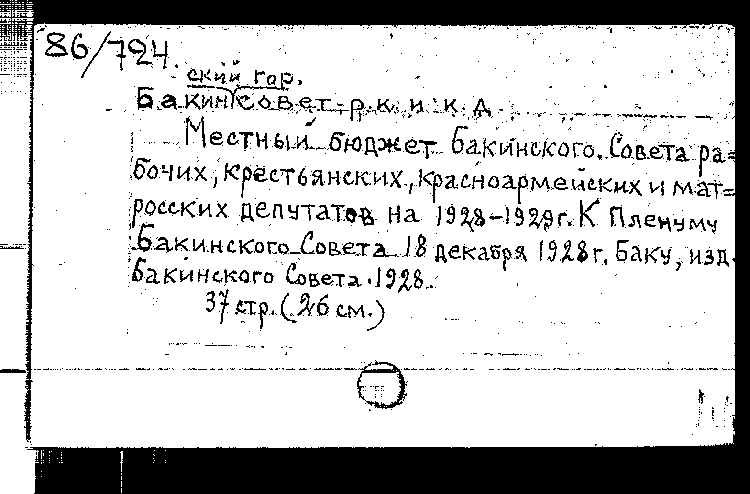 86/724.
ский гор.
Бакин совет р. к. и к. д.
Местный бюджет Бакинского Совета ра=
бочих, крестьянских, красноармейских и мат=
росских депутатов на 1928-1929 г. К Пленуму
Бакинского Совета 18 декабря 1928 г. Баку, изд.
Бакинского Совета. 1928.
37 стр. (26 см.)